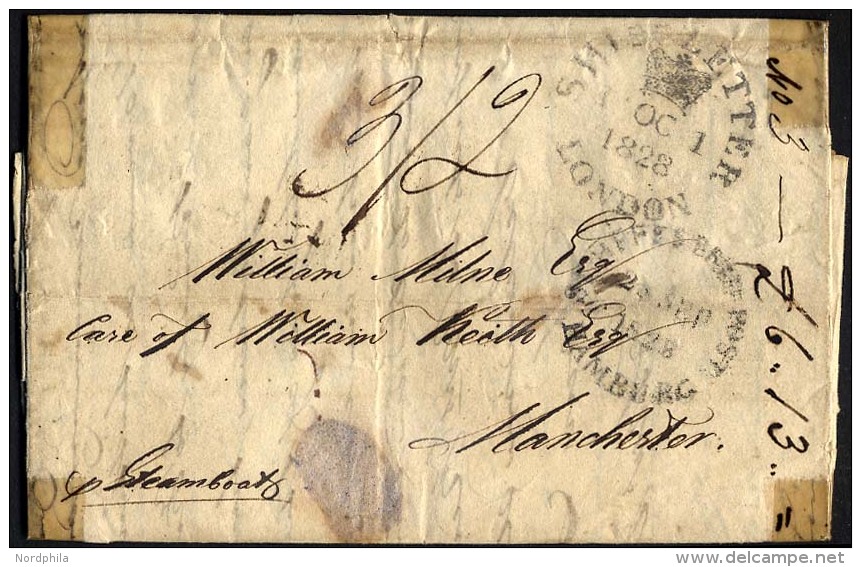 3/2
SHIP LETTER
OC 1
1828
LONDON
SCHIFFS BRIEF POST
SEP
1828
HAMBURG
William Milne Esqr
Care of William Keith Esqr
Manchester.
p Steamboat
No 3 — £ 6 " 13 " =
Nordphila
delcampe.net